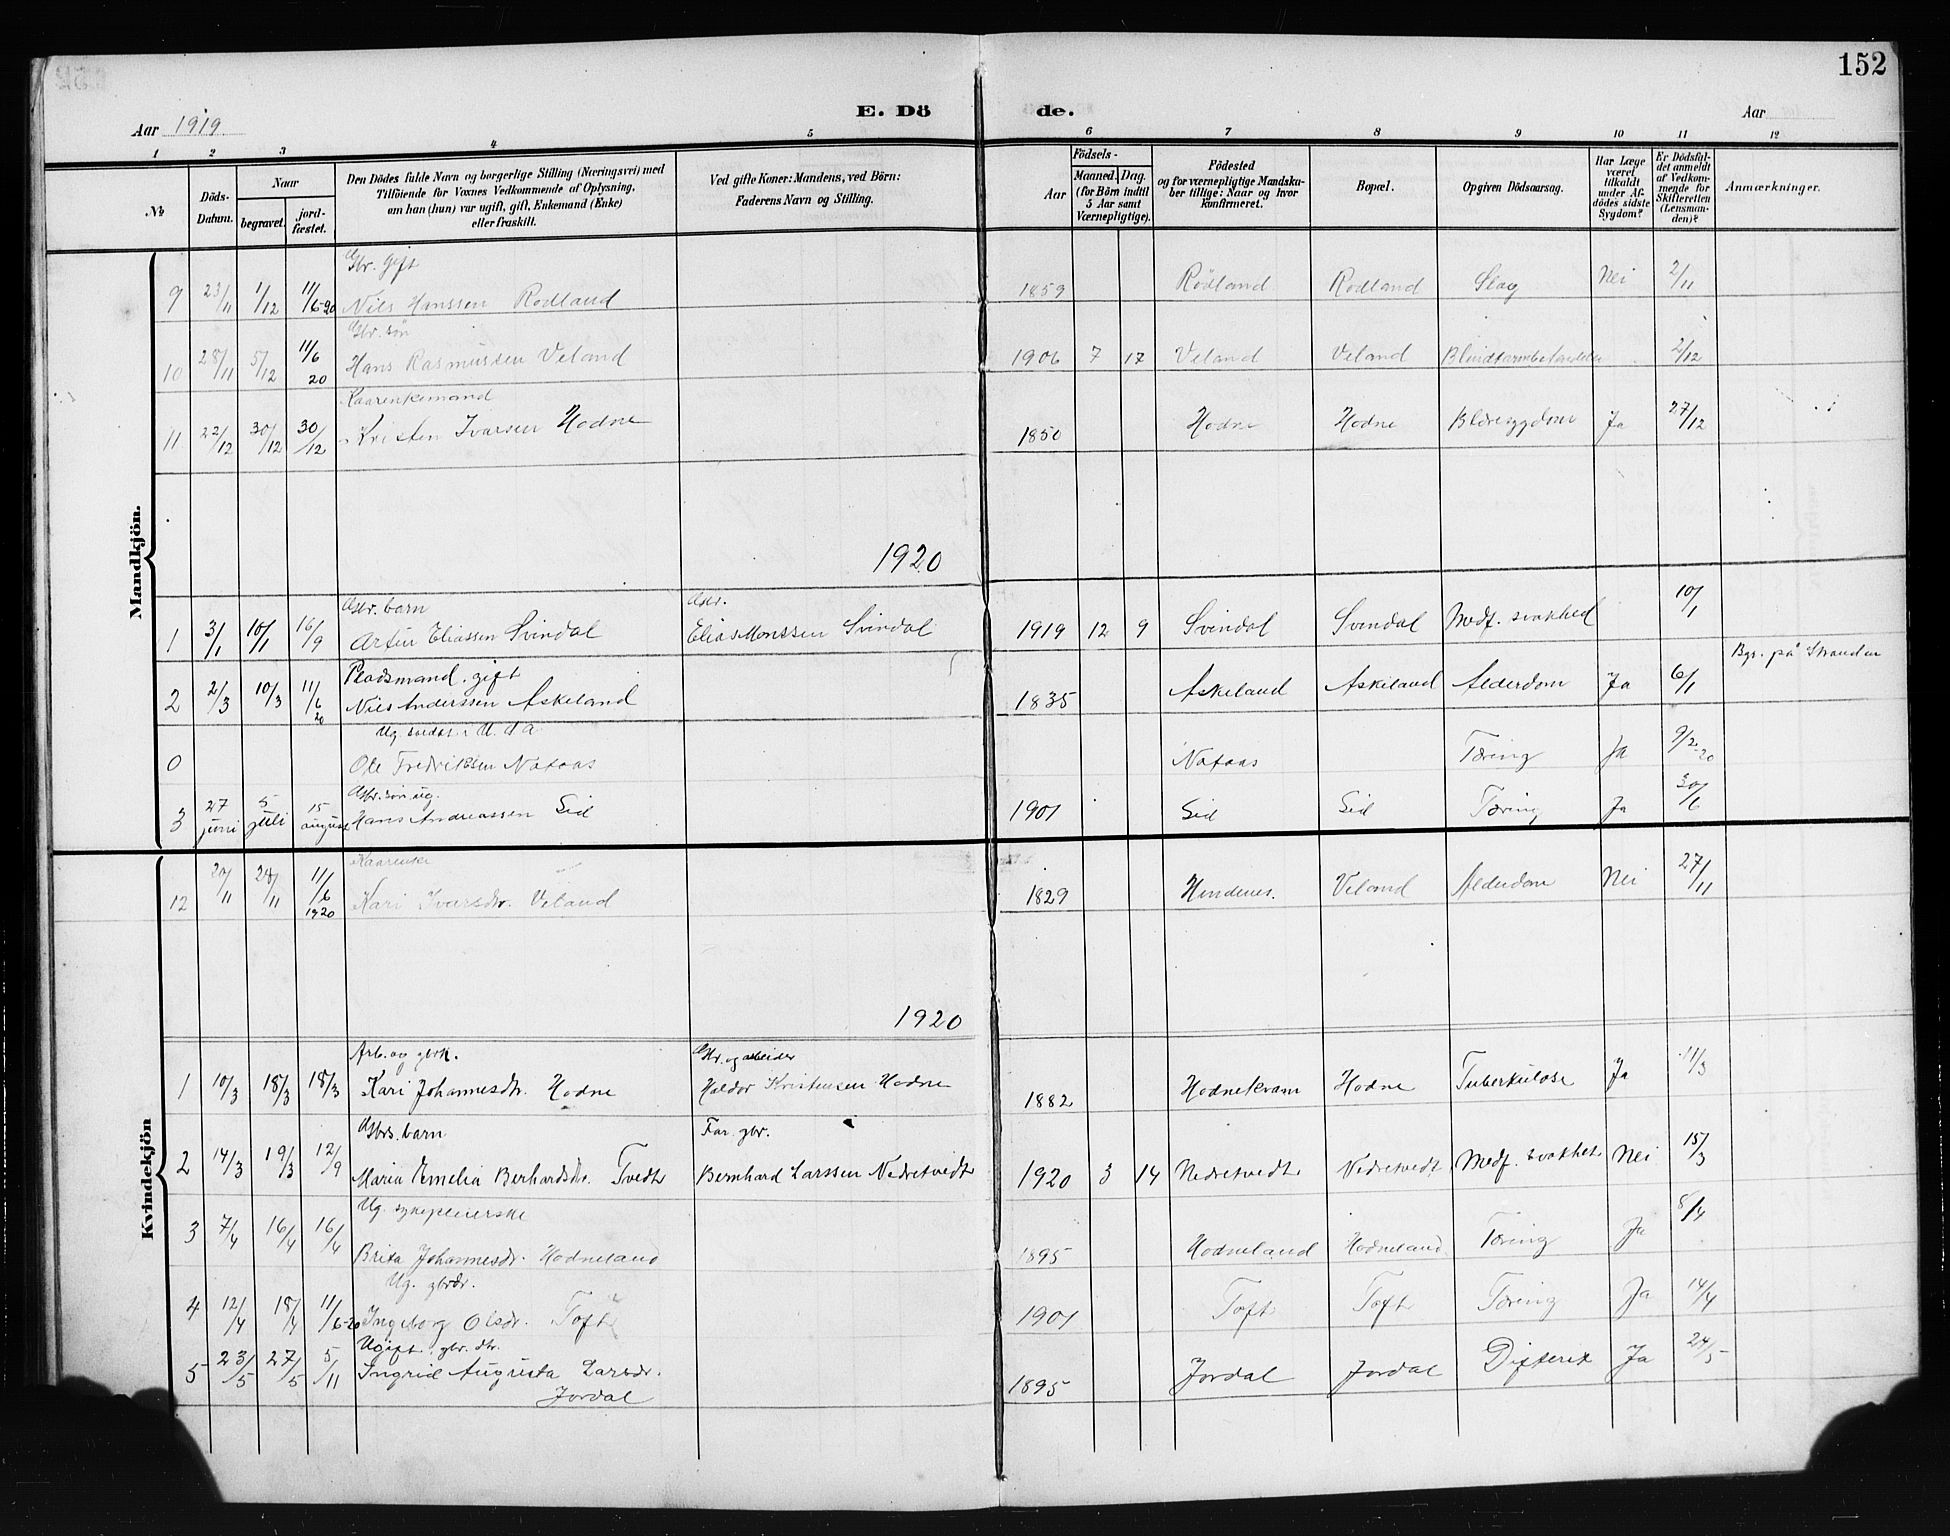 152
E. Dö de.
Aar 1919
Aar
1 2 3 4 5 6 7 8 9 10 11 12
№
Döds-Datum.
Naar
begravet.
jord-fæstet.
Den Dödes fulde Navn og borgerlige Stilling (Næringsvei) med
Tilföiende for Voxnes Vedkommende af Oplysning,
om han (hun) var ugift, gift, Enkemand (Enke)
eller fraskilt.
Ved gifte Koner: Mandens, ved Börn:
Faderens Navn og Stilling.
Födsels-
Aar
Maaned. Dag.
(for Börn indtil
5 Aar samt
Værnepligtige).
Födested
og for værnepligtige Mandska-
ber tillige: Naar og hvor
konfirmeret.
Bopæl.
Opgiven Dödsaarsag.
Har Læge
været
tilkaldt
under Af-
dödes sidste
Sygdom?
Er Dödsfal-
det anmeldt
af Vedkom-
mende for
Skifteretten
(Lensman-
den)?
Anmærkninger.
Mandkjön.
Gbr. gift
9 23/11 1/12 11/6-20 Nils Hanssen Rödland 1859 Rödland Rödland Slag Nei 2/11
Gbr. søn
10 28/11 5/12 11/6 20 Hans Rasmussen Veland 1906 7 17 Veland Veland 2/12
Kaarenkemand
11 22/12 30/12 30/12 Kristen Ivarsen Hodne 1850 Hodne Hodne Blæresygdom Ja 27/12
1920
Gbr. barn Gbr.
1 3/1 10/1 16/9 Artur Eliassen Svindal Elias Monssen Svindal 1919 12 9 Svindal Svindal Medf. svakhed 10/1
Pladsmand. gift
2 2/3 10/3 11/6 20 Nils Anderssen Askeland 1835 Askeland Askeland Alderdom Ja 6/1 Bgr. på Stranden
Ug. soldat i U.S.A.
0 Ole Fredriksen Nataas Nataas Tæring Ja 9/2 20
Gbr. søn ug.
3 27 juni 5 juli 15 august Hans Andreassen Eid 1901 Eid Eid Tæring Ja 30/6
Kvindekjön
Kaarenke
12 20/11 28/11 11/6 1920 Kari Ivarsdtr. Veland 1829 Hindenes. Veland Alderdom Nei 27/11
1920
Arb. og gbrk. Gbr. og arbeider
1 10/3 18/3 18/3 Kari Johannesdtr. Hodne Haldor Kristensen Hodne 1882 Hodnekvam Hodne Tuberkulose Ja 11/3
Gbrs. barn Far. gbr.
2 14/3 19/3 12/9 Maria Emelia Berhardsdtr. Tvedt Bernhard Larssen Nedretvedt 1920 3 14 Nedretvedt Nedretvedt Medf. svakhet Nei 15/3
Ug. sykepleierske
3 7/4 16/4 16/4 Brita Johannesdr. Hodneland 1895 Hodneland Hodneland Tæring Ja 8/4
Ug. gbrdr.
4 12/4 18/4 11/6-20 Ingeborg Olsdr. Toft 1901 Toft Toft Tæring Ja 14/4
Ugift. gbr. dtr.
5 23/5 27/5 5/11 Ingrid Augusta Larsdr. 1895 Jordal Jordal Difterit Ja 24/5
Jordal